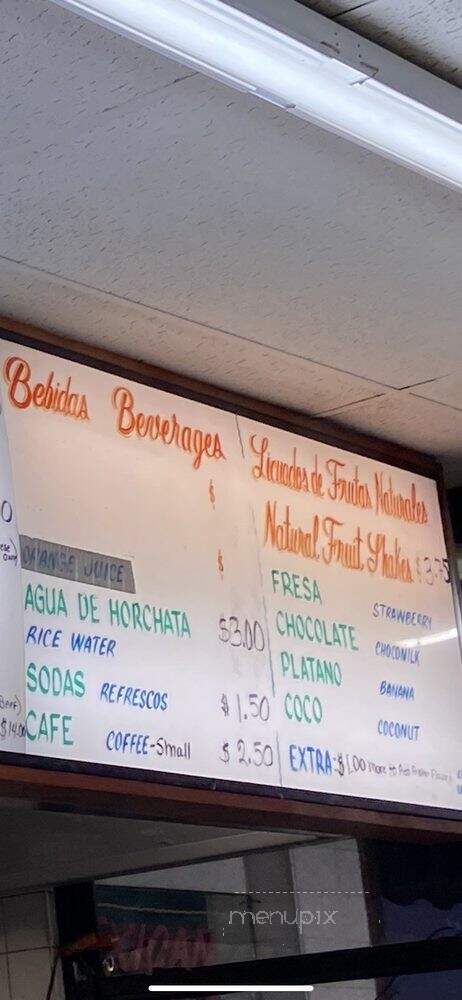 Bebidas Beverages
$
$
ORANGE JUICE
AGUA DE HORCHATA $3.00
RICE WATER
SODAS REFRESCOS $1.50
CAFE COFFEE-Small $2.50
Licuados de Frutas Naturales
Natural Fruit Shakes $3.75
FRESA STRAWBERRY
CHOCOLATE CHOCOMILK
PLATANO BANANA
COCO COCONUT
EXTRA-$1.00 more to Add
menupix